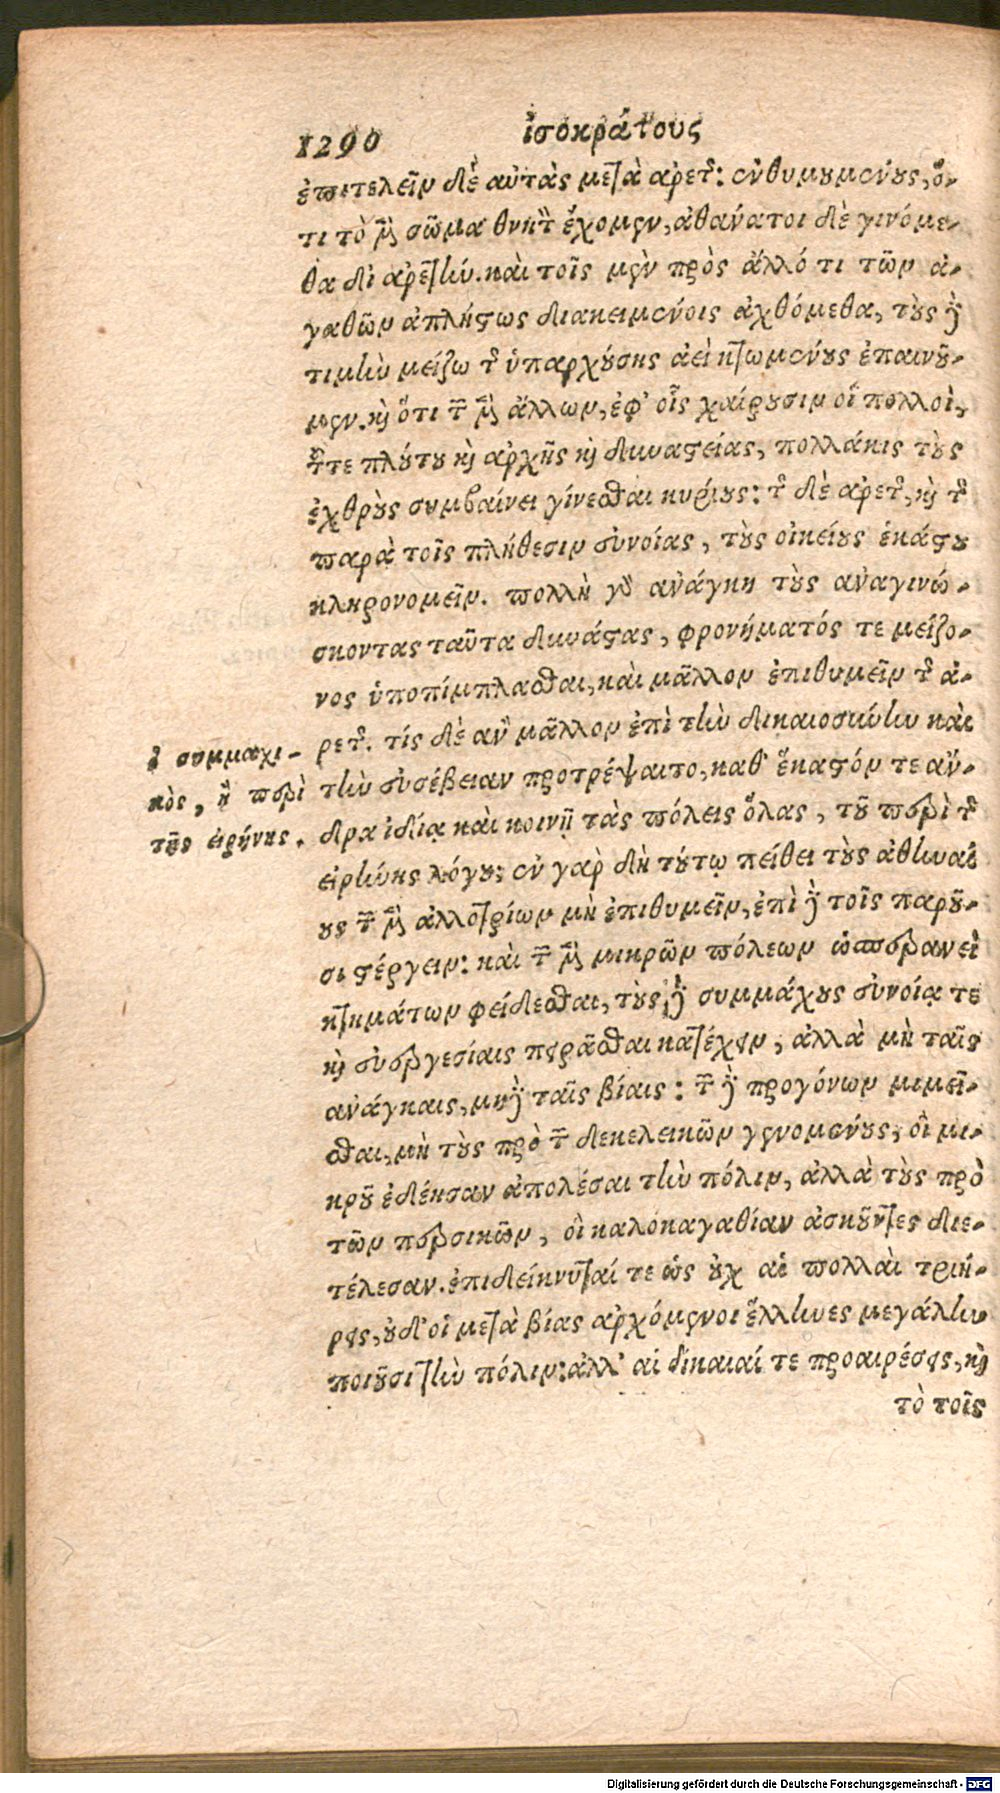 1290 ἰσοκράτους
ἐπιτελεῖν δὲ αὐτὰς μετὰ ἀρετῆς: ἐνθυμουμένους, ὅ-
τι τὸ μὲν σῶμα θνητὸν ἔχομεν, ἀθάνατοι δὲ γινόμε-
θα δι ἀρετήν. καὶ τοῖς μὲν πρὸς ἄλλό τι τῶν ἀ-
γαθῶν ἀπλήστως διακειμένοις ἀχθόμεθα, τοὺς δὲ
τιμὴν μείζω τῆς ὑπαρχούσης ἀεὶ κτωμένους ἐπαινοῦ-
μεν. καὶ ὅτι τῶν μὲν ἄλλων, ἐφ' οἷς χαίρουσιν οἱ πολλοὶ,
τοῦτε πλούτου καὶ ἀρχῆς καὶ δυναστείας, πολλάκις τοὺς
ἐχθροὺς συμβαίνει γίνεσθαι κυρίους: τῆς δὲ ἀρετῆς, καὶ τῆς
παρὰ τοῖς πλήθεσιν εὐνοίας, τοὺς οἰκείους ἑκάστου
κληρονομεῖν. πολλὴ γὰρ ἀνάγκη τοὺς ἀναγινώ-
σκοντας ταῦτα δυνάστας, φρονήματός τε μείζο-
νος ὑποπίμπλασθαι, καὶ μᾶλλον ἐπιθυμεῖν τῆς ἀ-
ρετῆς. τίς δὲ ἂν μᾶλλον ἐπὶ τὴν δικαιοσύνην καὶ
τὴν εὐσέβειαν προτρέψαιτο, καθ' ἕκαστόν τε ἄν-
δρα ἰδίᾳ καὶ κοινῇ τὰς πόλεις ὅλας, τοῦ περὶ τῆς
εἰρήνης λόγου; ἐν γὰρ δὴ τούτῳ πείθει τοὺς ἀθηναί
ους τῶν μὲν ἀλλοτρίων μὴ ἐπιθυμεῖν, ἐπὶ δὲ τοῖς παροῦ-
σι στέργειν: καὶ τῶν μὲν μικρῶν πόλεων ὡσπερανεὶ
κτημάτων φείδεσθαι, τοὺς δὲ συμμάχους εὐνοίᾳ τε
καὶ εὐεργεσίαις πειρᾶσθαι κατέχειν, ἀλλὰ μὴ ταῖς
ἀνάγκαις, μηδὲ ταῖς βίαις: τῶν δὲ προγόνων μιμεῖ-
σθαι, μὴ τοὺς πρὸ τῶν δεκελεικῶν γενομένους, οἳ μι-
κροῦ ἐδέησαν ἀπολέσαι τὴν πόλιν, ἀλλὰ τοὺς πρὸ
τῶν περσικῶν, οἳ καλοκαγαθίαν ἀσκοῦντες διε-
τέλεσαν. ἐπιδείκνυταί τε ὡς οὐχ αἱ πολλαὶ τριή-
ρεις, οὐδ' οἱ μετὰ βίας ἀρχόμενοι ἕλληνες μεγάλην
ποιοῦσι τὴν πόλιν: ἀλλ' αἱ δίκαιαί τε προαιρέσεις, καὶ
τὸ τοῖς
συμμαχι-
κὸς, ἢ περὶ
τῆς εἰρήνης.
Digitalisierung gefördert durch die Deutsche Forschungsgemeinschaft - DFG